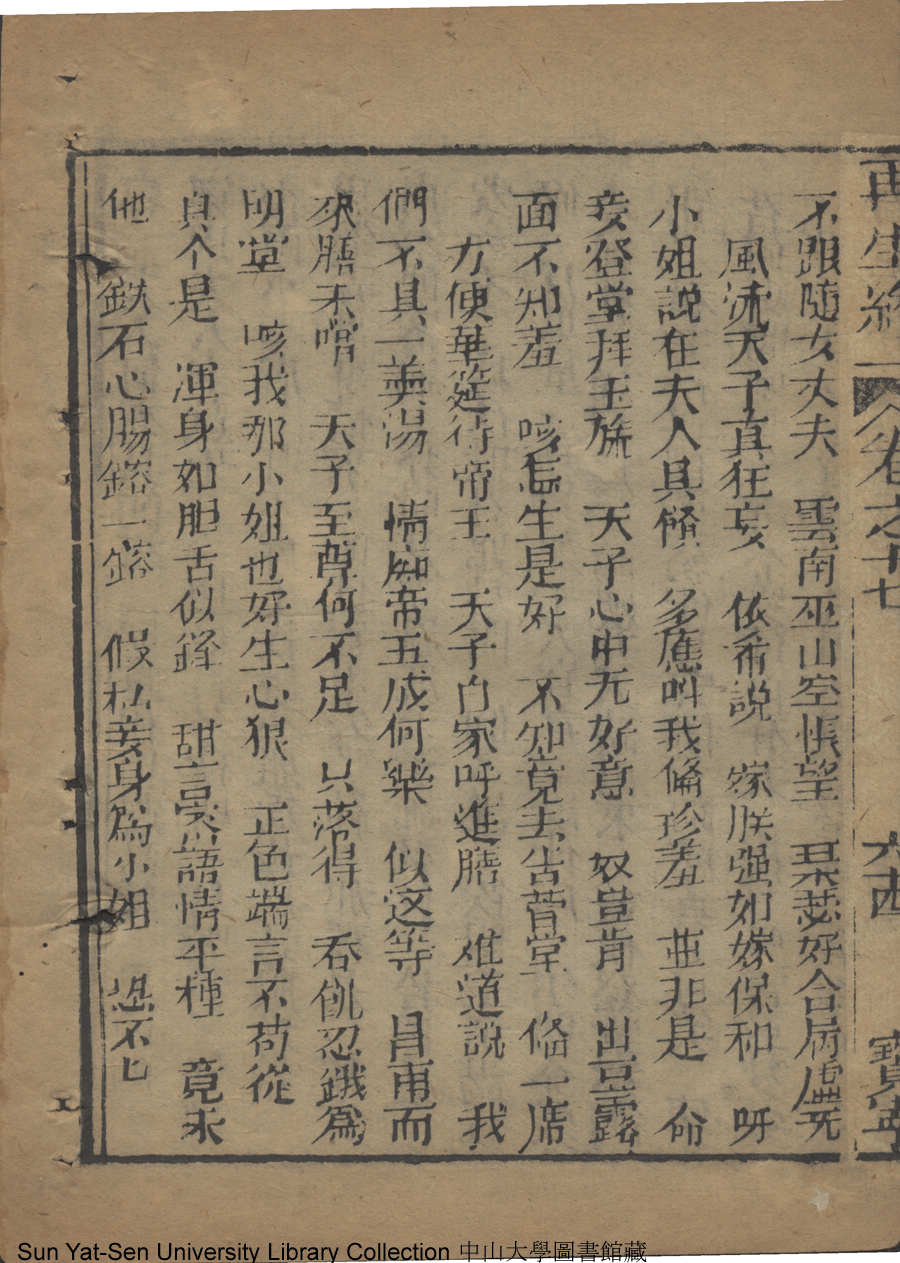 再生緣 卷之十七 六四 寶寧
不跟随女丈夫 雲南巫山空悵望 琹瑟好合屬虛无
風流天子真狂妄 依希說 嫁朕强如嫁保和 呀
小姐說在夫人具俻 多應叫我俻珍羞 並非是 命
妾登堂拜王族 天子心中无好意 奴豈肯 出豆露
面不知羞 咳怎生是好 不知竟去告菅堂 俻一席
方便華筵待帝王 天子自家呼進膳 难道說 我
們不具一羮湯 情痴帝五成何樂 似这等 昌甫而
來膳未嚐 天子至尊何不足 只落得 吞飢忍餓為
明堂 咳我那小姐也好生心狠 正色端言不苟從
真个是 渾身如胆舌似鋒 甜言笑語情平種 竟求
他 鉄石心腸鎔一鎔 假私妾身為小姐 恐不七
Sun Yat-Sen University Library Collection 中山大學圖書館藏